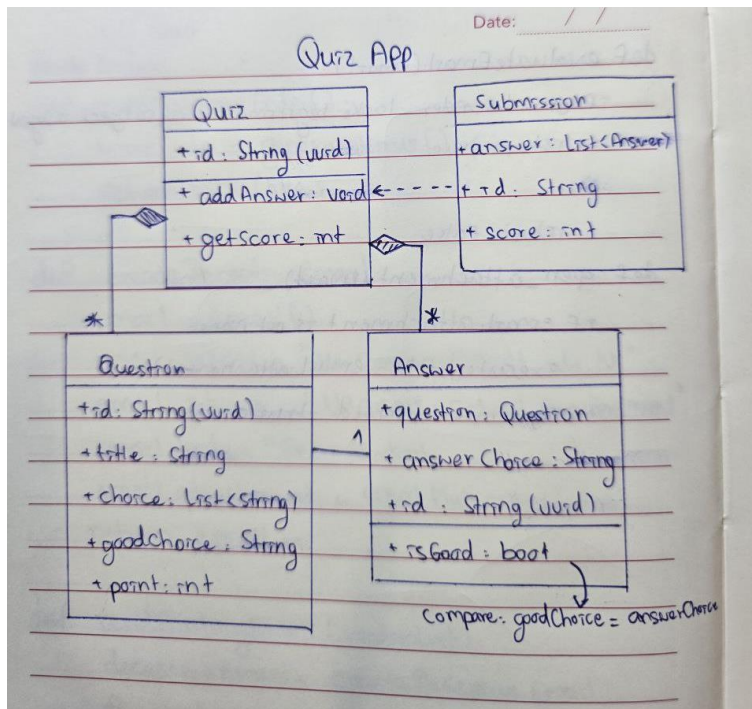 Date: / /
Quiz App
Quiz
+ id: String (uuid)
+ addAnswer: void
+ getScore: int
Submission
+ answer: List<Answer>
+ id: String
+ score: int
*
*
Question
+ id: String (uuid)
+ title: String
+ choice: List<String>
+ goodChoice: String
+ point: int
1
Answer
+ question: Question
+ answerChoice: String
+ id: String (uuid)
+ isGood: bool
compare: goodChoice = answerChoice